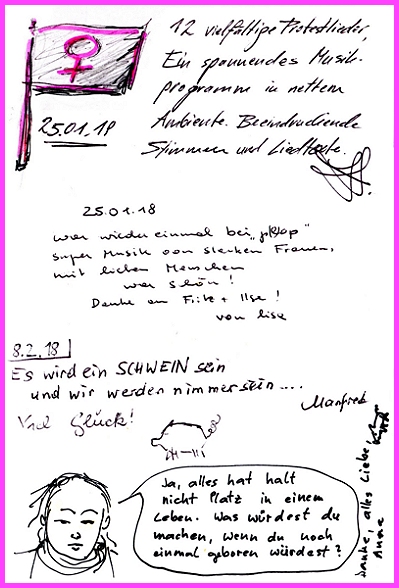 12 vielfältige Protestlieder,
Ein spannendes Musik-
programm in nettem
Ambiente. Beeindruckende
Stimmen und Liedtexte.
25.01.18
25.01.18
war wieder einmal bei
super Musik von starken Frauen,
mit lieben Menschen
war schön!
Danke an Fritz + Ilse!
von Lisa
8.2.18
Es wird ein SCHWEIN sein
und wir werden nimmer sein....
Viel Glück!
Manfred
Ja, alles hat halt
nicht Platz in einem
Leben. Was würdest du
machen, wenn du noch
einmal geboren würdest?
Danke, alles Liebe
Anna